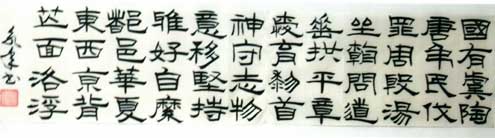 國有虞陶
唐弔民伐
罪周殷湯
坐朝問道
垂拱平章
愛育黎首
神守志物
意移堅持
雅好自縻
都邑華夏
東西京背
芒面洛浮